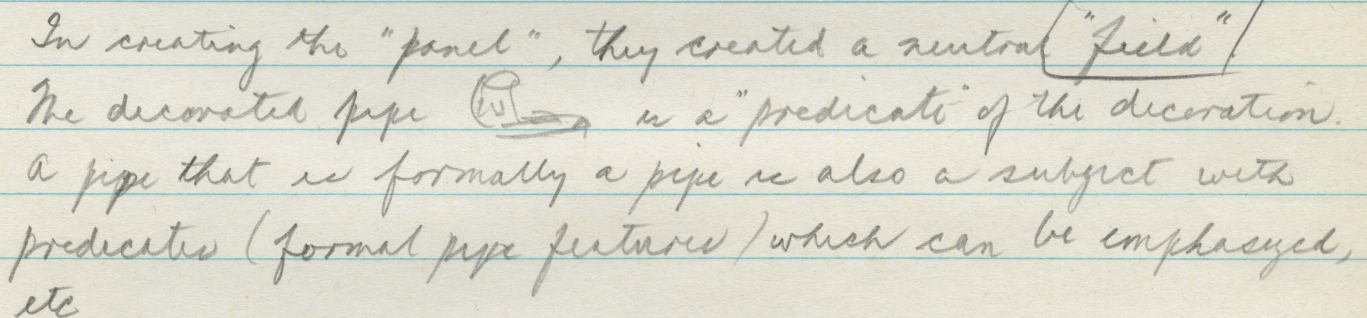 In creating the "panel", they created a neutral "field".
The decorated pipe is a "predicate" of the decoration.
A pipe that is formally a pipe is also a subject with
predicates (formal pipe features) which can be emphasized,
etc